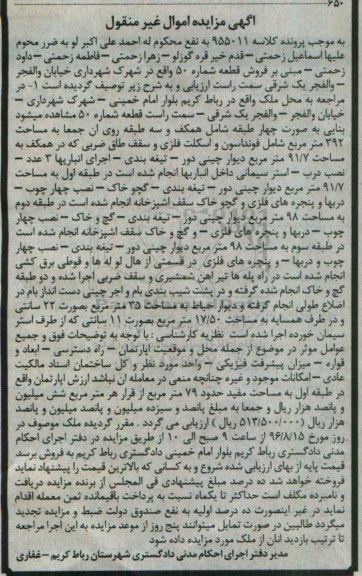 ۶۵۰-
آگهی مزایده اموال غیر منقول
به موجب پرونده کلاسه ۹۵۵۰۱۱ به نفع محکوم له احمد علی اکبر لو به ضرر محوم
علیها اسماعیل زحمتی – قدم خیر قره گوزلو – زهرا زحمتی – فاطمه زحمتی – داود
زحمتی – مبنی بر فروش قطعه شماره ۵۰ واقع در شهرک شهرداری خیابان والفجر
– والفجر یک شرقی سمت راست ارزیابی و به شرح زیر توصیف گردیده است ۱- در
مراجعه به محل ملک واقع در رباط کریم بلوار امام خمینی – شهرک شهرداری –
خیابان والفجر – والفجر یک شرقی – سمت راست قطعه شماره ۵۰ مشاهده میشود
بنایی به صورت چهار طبقه شامل همکف و سه طبقه روی آن جمعا به مساحت
۳۹۲ متر مربع شامل فونداسون و اسکلت فلزی و سقف طاق ضربی که در همکف به
مساحت ۹۱/۷ متر مربع دیوار چینی دور – تیغه بندی – اجرای انباریها ۳ عدد –
نصب درب – استر سیمانی داخل انباریها انجام شده است در طبقه اول به مساحت
۹۱/۷ متر مربع دیوار چینی دور – تیغه بندی – گچو خاک – نصب چهار چوب –
دربها و پنجره های فلزی و گچو خاک سقف اشپزخانه انجام شده است در طبقه دوم
به مساحت ۹۸ متر مربع دیوار چینی دور – تیغه بندی – گچ و خاک – نصب چهار
چوب – دربها و پنجره های فلزی – و گچ و خاک سقف اشپزخانه انجام شده است
در طبقه سوم به مساحت ۹۸ متر مربع دیوار چینی دور – تیغه بندی – نصب چهار
چوب و دربها – و پنجره های فلزی در قسمتی از هال لو له ها و قوطی برق کشی
انجام شده است در راه پله ها تیر اهن شمشیری و سقف ضربی اجرا شده و دو طبقه
گچ و خاک انجام شده گرفته و در پشت شیب بندی بام و اجر چینی دست انداز بام در
اضلاع طولی انجام گرفته و دیوار حیاط به مساحت ۳۵ متر مربع بصورت ۲۲ سانتی
و در طرف همسایه به مساحت ۱۷/۵۰ متر مربع بصورت ۱۱ سانتی که از طرف استر
سیمان خورده اجرا شده است نظریه کارشناسی : با توجه به توضیحات فوق و جمیع
عوامل موثر در موضوع از جمله محل و موقعیت اپارتمان – راه دسترسی – ابعاد و
قواره – میزان پیشرفت فیزیکی – واحد مورد نظر و کل ساختمان اسناد مالکیت
عادی – امکانات موجود و غیره چنانچه منعی در معامله ان نباشد ارزش اپارتمان واقع
در طبقه اول به مساحت مفید حدود ۷۹ متر مربع از قرار هر متر مربع شش میلیون
و پانصد هزار ریال و جمعا به مبلغ پانصد و سیزده میلیون و پانصد میلیون و پانصد
هزار ریال (۵۱۳/۵۰۰/۰۰۰ ریال ) ارزیابی می گردد . مقرر گردیده ملک موصوف در
روز مورخ ۹۶/۸/۱۵ از ساعت ۹ صبح الی ۱۰ از طریق مزایده در دفتر اجرای احکام
مدنی دادگستری رباط کریم بلوار امام خمینی دادگستری رباط کریم به فروش برسد
قیمت پایه از بهای ارزیابی شده شروع و به کسانی که بالاترین قیمت را پیشنهاد نماید
فروخته خواهد شد ده درصد مبلغ پیشنهادی فی المجلس از برنده مزایده دریافت
و نامبرده مکلف است حداکثر تا یکماه نسبت به پرداخت باقیمانده ثمن معامله اقدام
نماید در غیر اینصورت ده درصد اولیه به نفع صندوق دولت ضبط و مزایده تجدید
میگردد طالبین در صورت تمایل میتوانند پنج روز از موعد مزایده به این اجرا مراجعه
تا ترتیب بازدید انان از ملک مورد مزایده داده شود
مدیر دفتر اجرای احکام مدنی دادگستری شهرستان رباط کریم – غفاری